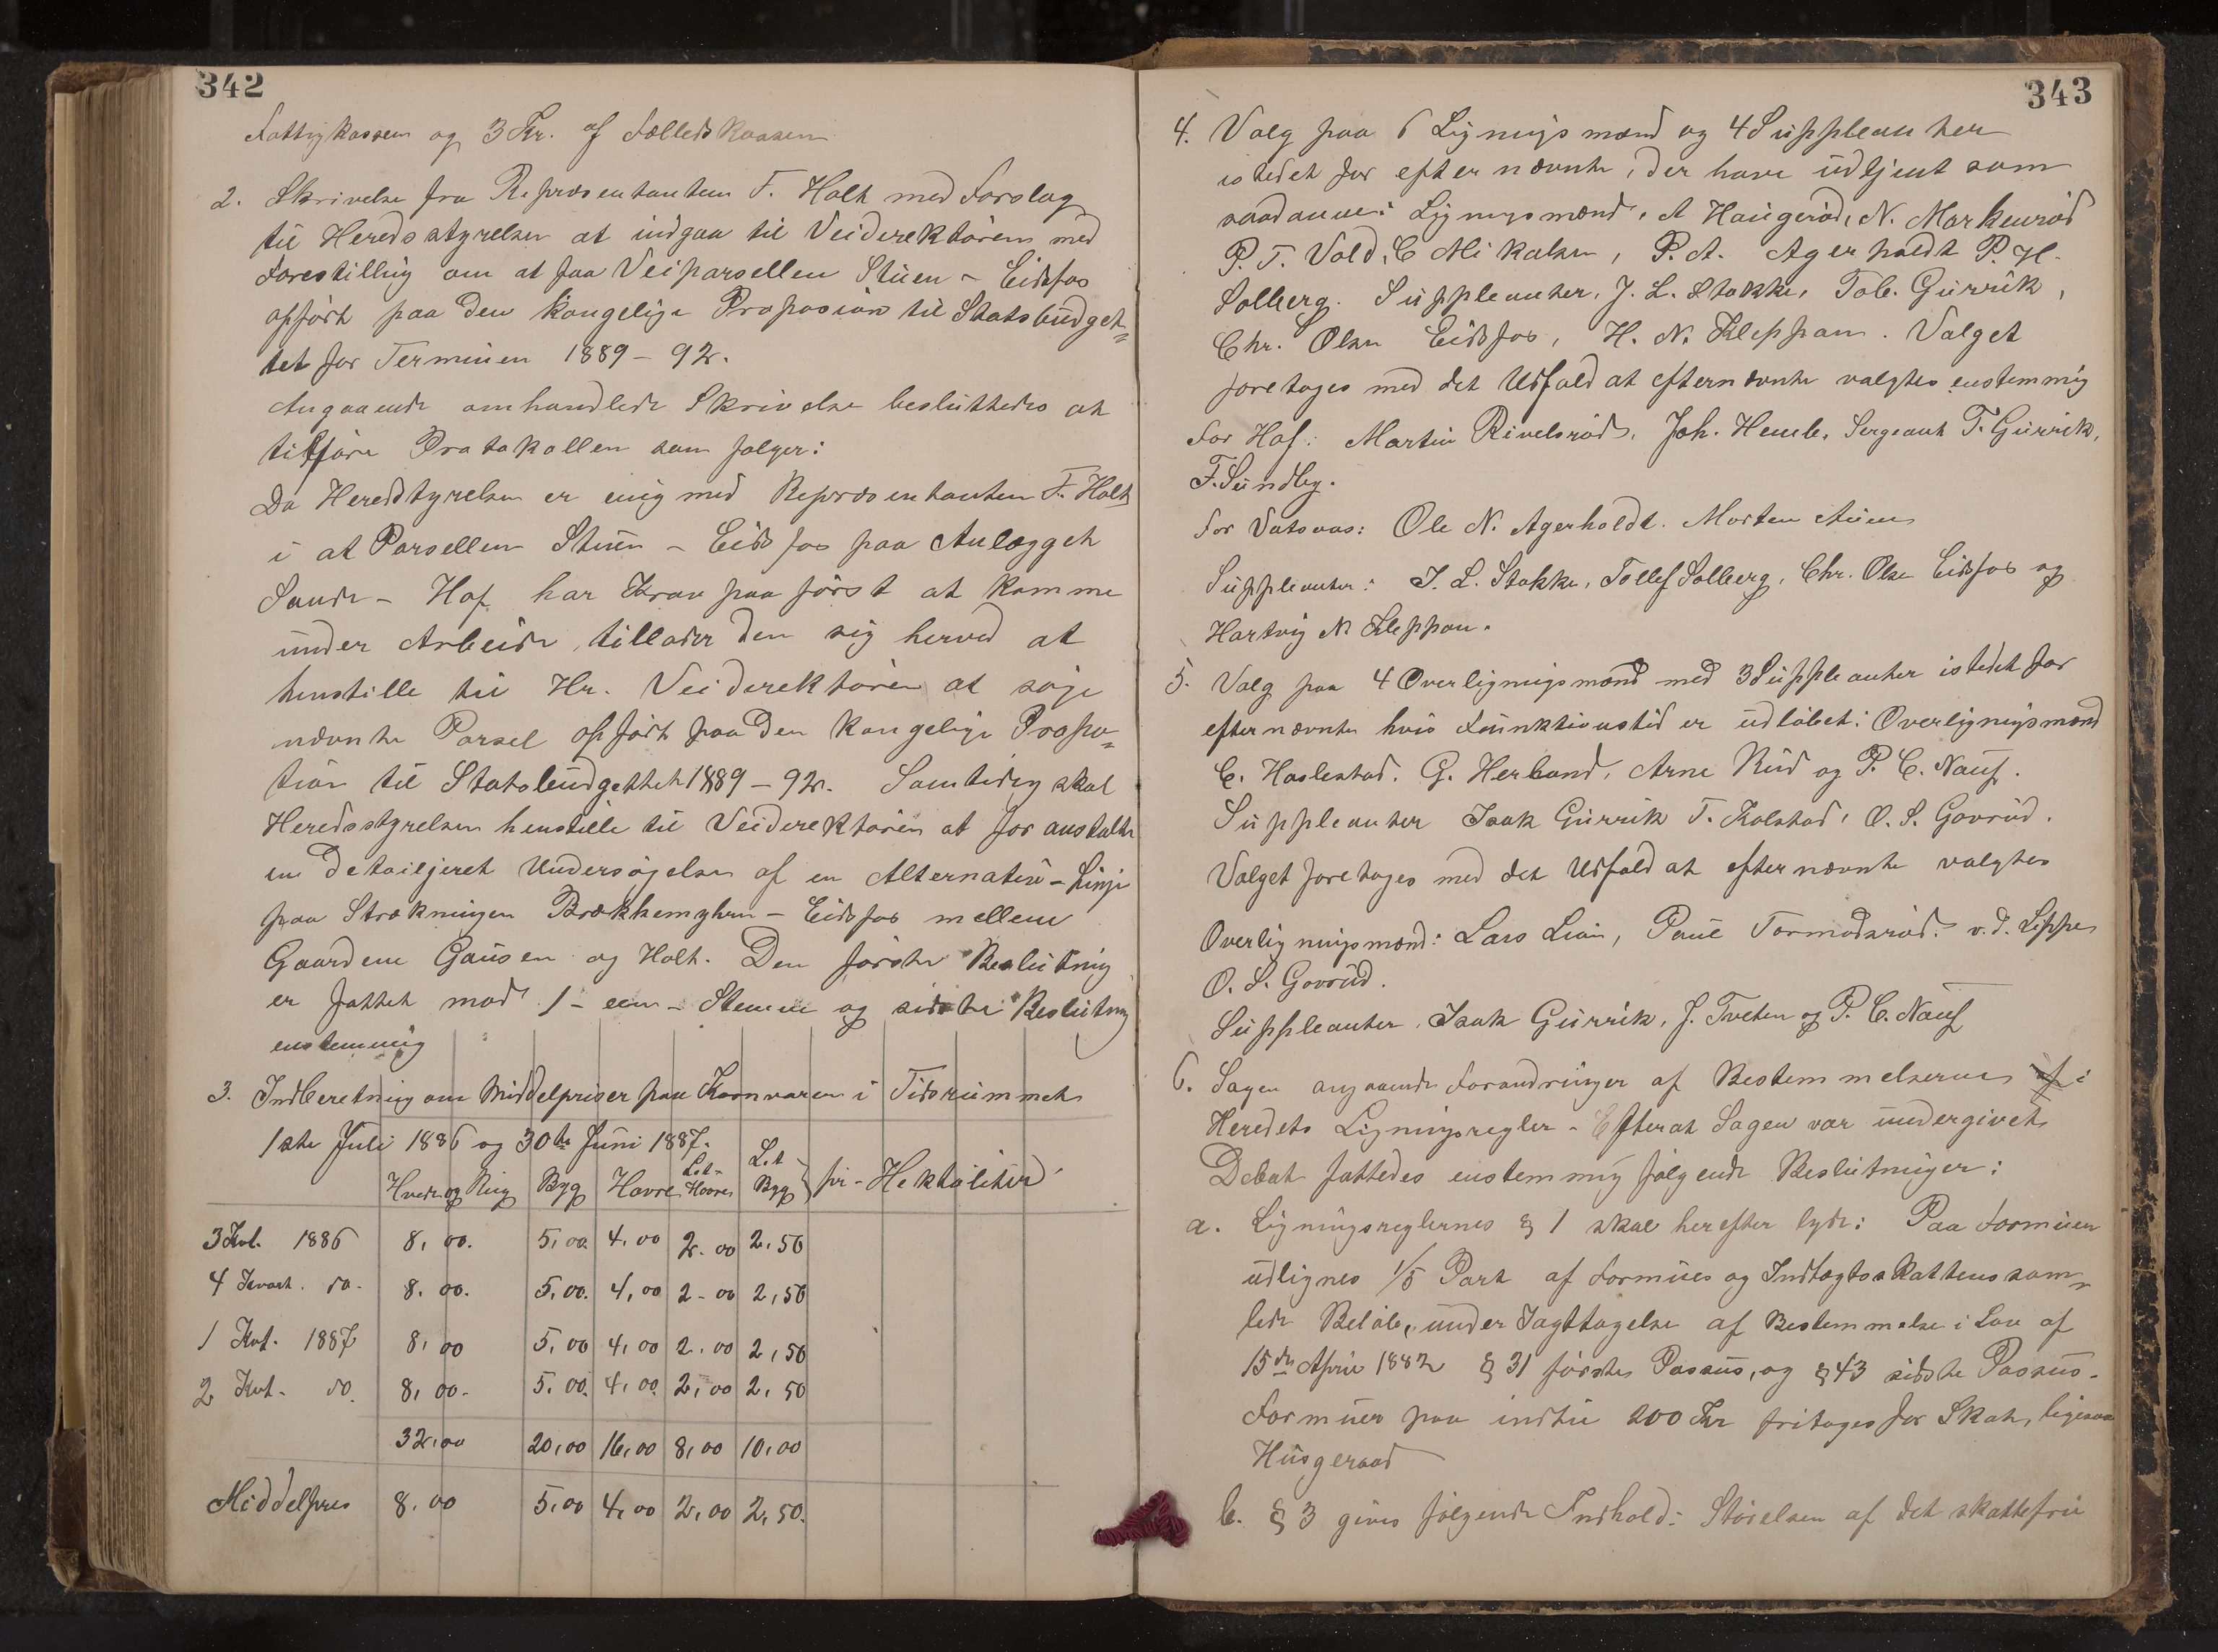 342
Fattigkassen og 3 Kr. af Fælledskassen
2. Skrivelse fra Repræsentanten F. Holt med Forslag
til Heredsstyrelsen at indgaa til Veidirektøren med
Forestilling om at faa Veiparsellen Stuen - Eidsfos
opført paa den kongelige Proposion til Statsbudget=
tet for Terminen 1889 - 92.
Angaaende omhandlede Skrivelse besluttedes at
tilføre Protokollen som følger:
Da Heredstyrelsen er enig med Repræsentanten F. Holt
i at Parsellen Stuen - Eidsfos paa Anlægget
Sande - Hof har Krav paa først at komme
under Arbeide, tillader den sig herved at
henstille til Hr. Veiderektøren at søge
nævnte Parsel opført paa den kongelige Propo=
tion til Statsbudgettet 1889 - 92. Samtidig skal
Heredsstyrelsen henstille til Veiderektøren at foranstalte
en detailjeret Undersøgelse af en Alternativ - Linje
paa Strækningen Brækkemyhren - Eidsfos mellem
Gaardene Gausen og Holt. Den første Beslutning
er fattet mod 1 - een - Stemme og sidste Beslutning
enstemmig
3. Indberetning om Middelpriser paa Kornvarer i Tidsrummet
1ste Juli 1886 og 30te Juni 1887.
Hvede og Rug Byg Havre Let-Havre Let Byg } pr - Hektoliter
3 Kvt. 1886 8,00. 5,00 4,00 2.00 2,50
4 Kvart. do. 8.00. 5,00. 4,00 2-00 2,50
1 Kvt. 1887 8,00 5,00 4,00 2.00 2,50
2 Kvt. do. 8,00. 5,00. 4,00. 2,00 2,50
32,00 20,00 16,00 8,00 10,00
Middelpris 8.00 5,00 4,00 2,00 2,50.
343
4. Valg paa 6 Ligningsmænd og 4 Suppleanter
istedet for efternævnte, der have udtjent som
saadanne: Ligningsmænd, A Haugerød, N. Markerød
P. T. Vold, C Mikalsen, P. A. Agerholdt P. H.
Solberg. Suppleanter, J. L. Stokke, Tob. Gurrik,
Chr. Olsen Eidsfos, H. N. Kleppan. Valget
foretages med det Udfald at efternævnte valgtes enstemmig
For Hof: Martin Rivelsrød, Joh. Hemb, Sergeant T. Gurrik,
F. Sundby.
For Vatsaas: Ole N. Agerholdt. Morten Auen
Suppleanter: J. L. Stokke, Tollef Solberg, Chr. Olsen Eidsfos og
Hartvig N Kleppan.
5. Valg paa 4 Overligningsmænd med 3 Suppleanter istedet for
efternævnte hvis Funktionstid er udløbet: Overligningsmænd
C. Haslestad. G. Herland, Arne Rud og P. C. Nauf.
Suppleanter Isak Gurrik T. Kolstad, O. S. Govrud.
Valget foretages med det Udfald at efternævnte valgtes
Overligningsmænd: Lars Lian, Paul Tormodsrød. v. d. Lippe
O. S. Govrud.
Suppleanter, Isak Gurrik, J. Tveten og P. C. Nauf
6. Sagen angaaende Forandringer af Bestemmelserne i
Heredets Ligningsregler - Efterat Sagen var undergivet
Debat fattedes enstemmig følgende Beslutninger:
a. Ligningsreglernes § 1 skal herefter lyde: Paa Formuen
udlignes 1/5 Part af Formues og Indtægtsskattens sam=
lede Beløb, under Iagttagelse af Bestemmelse i Lov af
15de April 1882 § 31 første Passus, og § 43 sidste Passus.
Formuer paa indtil 200 Kr fritages for Skat, ligesaa
Husgeraad
b. § 3 gives følgende Indhold: Størelsen af det skattefrie